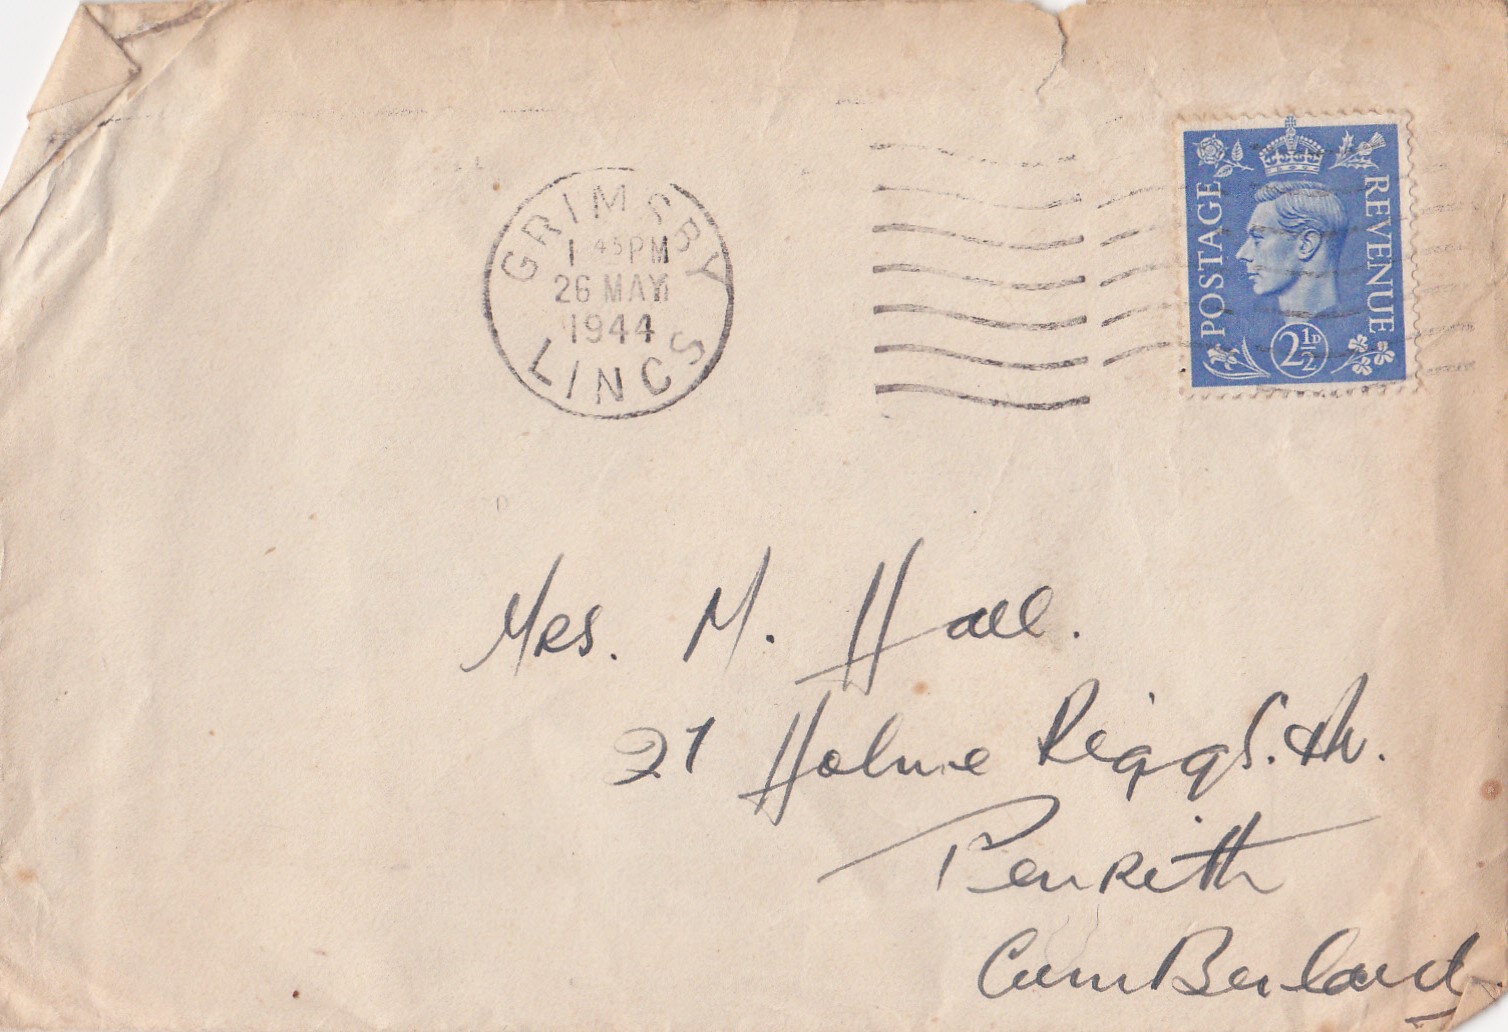 GRIMSBY
1 45PM
26 MAY
1944
LINCS
POSTAGE
REVENUE
2½D
Mrs. M. Hall.
21 Holme Riggs.
Penrith
CumBerland.